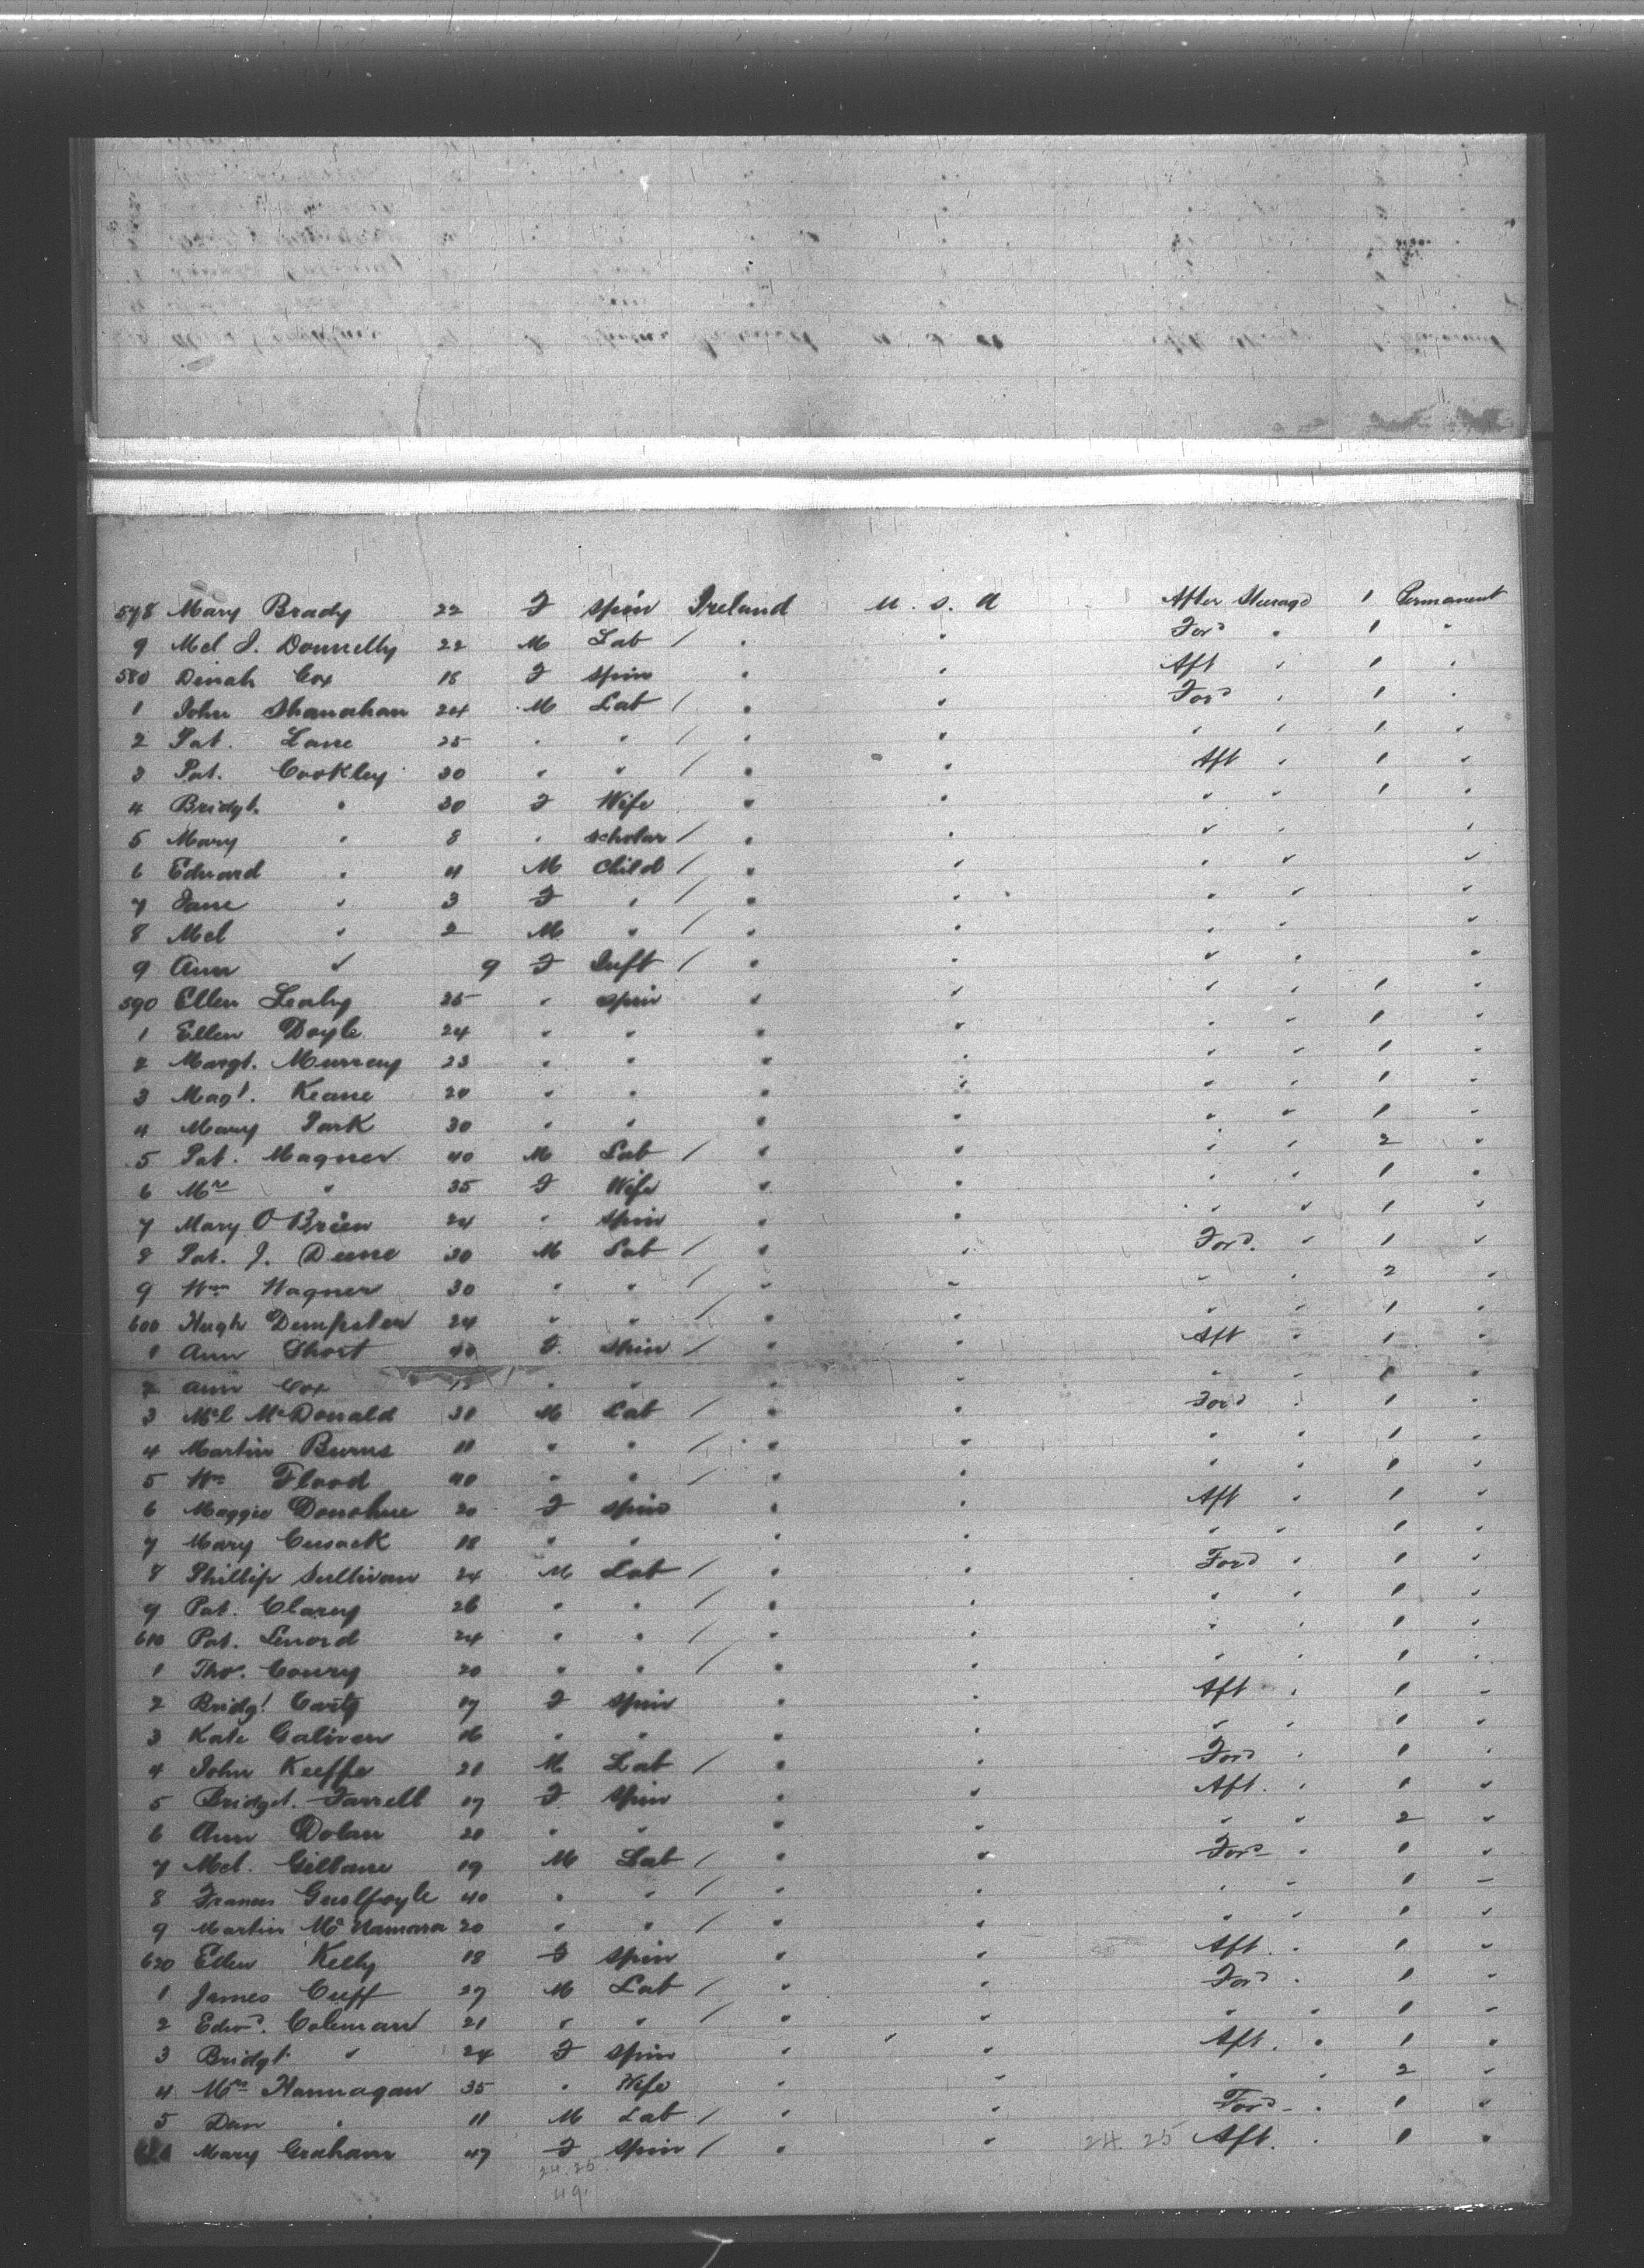 578 Mary Brady 22 F Spin Ireland U. S. A After Steerage 1 Permanent
9 Mcl J. Donnelly 22 M Lab / " " Ford " 1 "
580 Dinah Cox 18 F Spin " " Aft " 1 "
1 John Shanahan 24 M Lab / " " Ford " 1 "
2 Pat. Lane 25 " " / " " " " 1 "
3 Pat. Cookley 30 " " / " " Aft " 1 "
4 Bridgt. " 30 F Wife " " " " 1 "
5 Mary " 8 " Scholar / " " " " "
6 Edward " 4 M Child / " " " " "
7 Jane " 3 F " / " " " " "
8 Mcl " 2 M " / " " " " "
9 Ann " 9 F Inft / " " " " "
590 Ellen Leahy 25 " Spin " " " " 1 "
1 Ellen Doyle 24 " " " " " " 1 "
2 Margt. Murray 23 " " " " " " 1 "
3 Magt. Keane 20 " " " " " " 1 "
4 Mary Park 30 " " " " " " 1 "
5 Pat. Magner 40 M Lab / " " " " 2 "
6 Mrs " 35 F Wife " " " " 1 "
7 Mary O Brien 24 " Spin " " " " 1 "
8 Pat. J. Deene 30 M Lab / " " Ford. " 1 "
9 Wm Wagner 30 " " / " " " " 2 "
600 Hugh Dempster 24 " " / " " " " 1 "
1 Ann Short 40 F. Spin / " " Aft " 1 "
2 Ann Cox " " " " " " 1 "
3 Mcl McDonald 30 M Lab / " " Ford " 1 "
4 Martin Burns 11 " " / " " " " 1 "
5 Wm Flood 40 " " / " " " " 1 "
6 Maggie Donohue 20 F Spin " " Aft " 1 "
7 Mary Cusack 18 " " " " " " 1 "
8 Phillip Sullivan 24 M Lab / " " Ford " 1 "
9 Pat. Clarey 26 " " / " " " " 1 "
610 Pat. Lenord 24 " " / " " " " 1 "
1 Thos. Coury 20 " " / " " " " 1 "
2 Bridgt Carty 17 F Spin " " Aft " 1 "
3 Kate Galivan 16 " " " " " " 1 "
4 John Keeffe 21 M Lab / " " Ford " 1 "
5 Bridget. Farrell 17 F Spin " " Aft. " 1 "
6 Ann Dolan 20 " " " " " " 2 "
7 Mcl. Gillane 19 M Lab / " " Ford " 1 "
8 Frances Guilfoyle 40 " " / " " " " 1 "
9 Martin McNamara 20 " " / " " " " 1 "
620 Ellen Kelly 18 F Spin " " Aft. " 1 "
1 James Cuff 27 M Lab / " " Ford " 1 "
2 Edwd. Coleman 21 " " / " " " " 1 "
3 Bridgt " 24 F Spin " " Aft. " 1 "
4 Mrs Hannagan 35 " Wife " " " " 2 "
5 Dan " 11 M Lab / " " Ford " 1 "
Mary Graham 47 F Spin / " " 24. 25 Aft. " 1 "
24. 25
49